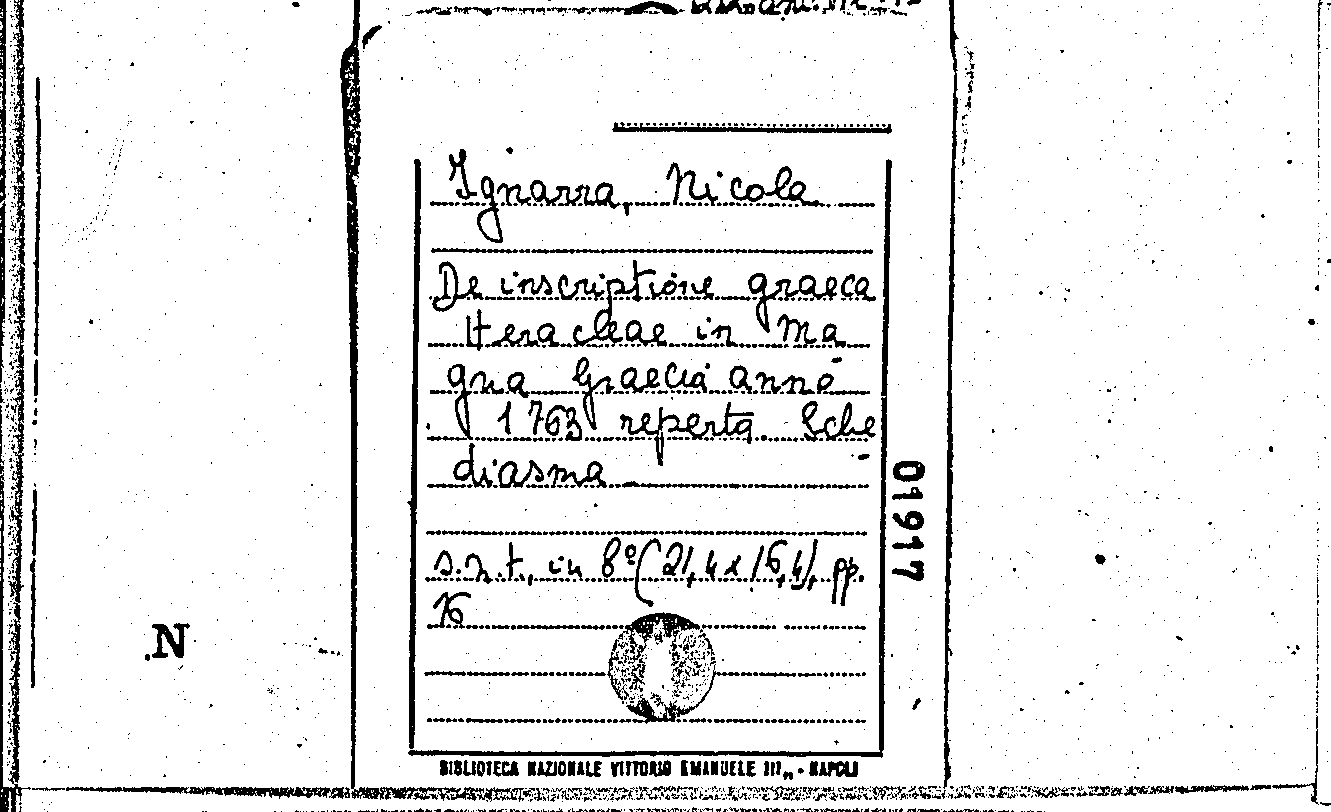 Ignarra, Nicola
De inscriptione graeca
Heracleae in Ma
gna Graecia anno
1763 reperta. Sche
diasma
s.n.t., in 8º (21,4x16,4), pp.
16
01917
N
BIBLIOTECA NAZIONALE VITTORIO EMANUELE III,, - NAPOLI